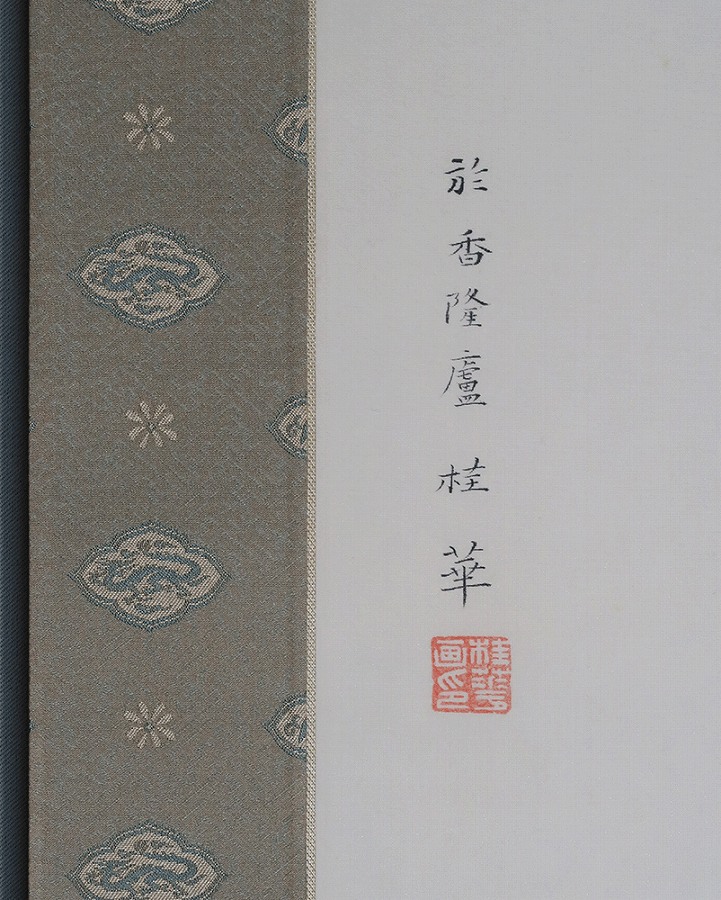 於香隆廬桂華
桂華
画印